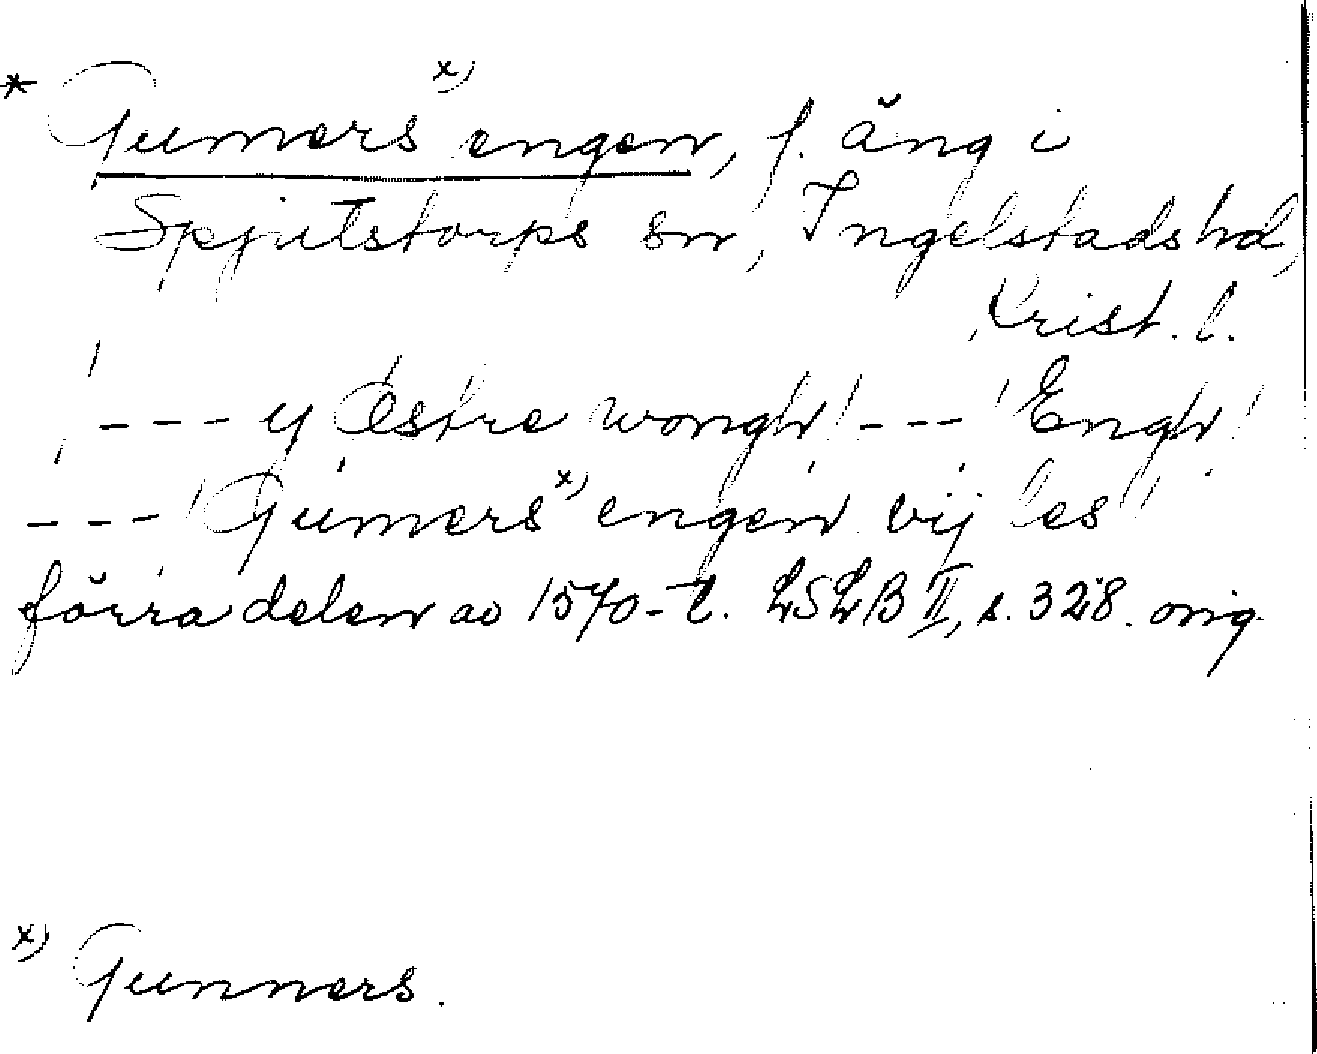 * Gumers x) engen, f. äng i
Spjutstorps sn, Ingelstads hd,
Krist. l.
/ - - - y Östre wongh / - - - / Engh /
- - - / Gumers x) engen vij les /
förra delen av 1570-t. LSLB II, s. 328. orig.
x) Gunners.